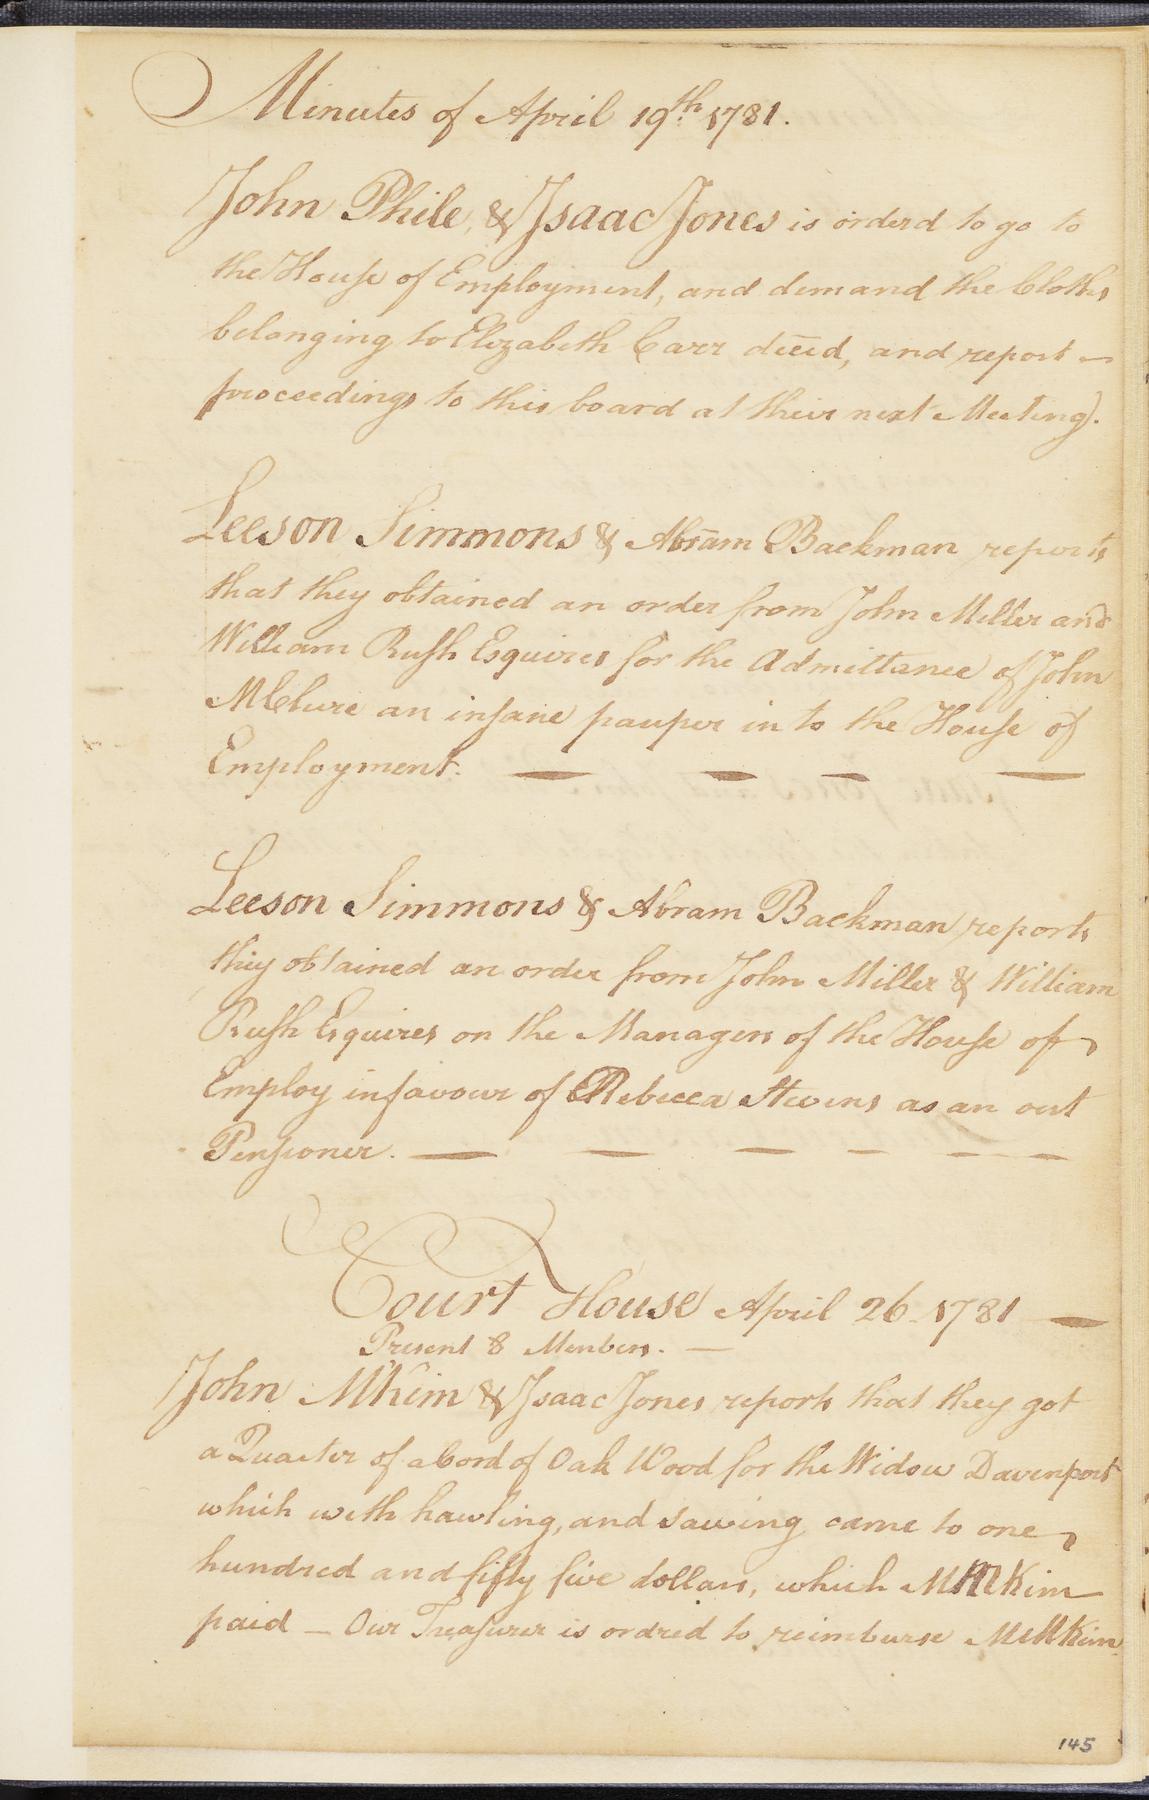 Minutes of April 19th. 1781.
John Phile, & Isaac Jones is orderd to go to
the House of Employment, and demand the Cloths
belonging to Elizabeth Carr deced, and report —
proceedings to this board at their next Meeting.
Leeson Simmons & Abram Backman reports
that they obtained an order from John Miller and
William Rush Esquires for the Admittance of John
MClure an insane pauper in to the House of
Employment. — — — —
Leeson Simmons & Abram Backman reports
they obtained an order from John Miller & William
Rush Esquires on the Managers of the House of
Employ in favour of Rebecca Stevens as an out
Pensioner. — — — — — —
Court House April 26 - 1781 —
Present 8 Members. —
John MKim & Isaac Jones reports that they got
a Quarter of a Cord of Oak Wood for the Widow Davenport
which with hawling, and sawing came to one
hundred and fifty five dollars, which M MKim
paid — Our Treasurer is ordred to reimburse M MKim
145